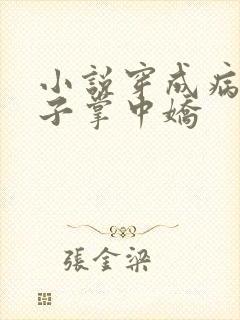 小説穿成病
子掌中嬌
張金梁